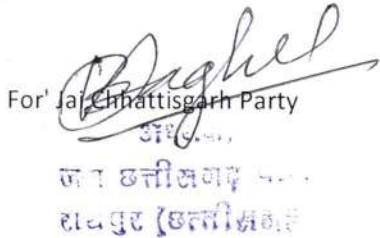 Baghel
For' Jai Chhattisgarh Party
अध्यक्ष,
जय छत्तीसगढ़
रायपुर (छत्तीसगढ़